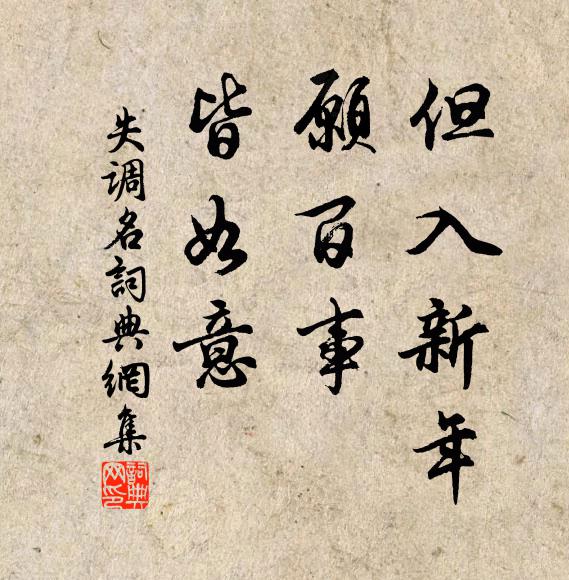 但入新年
願百事
皆如意
失调名詞典網集
詞典網印